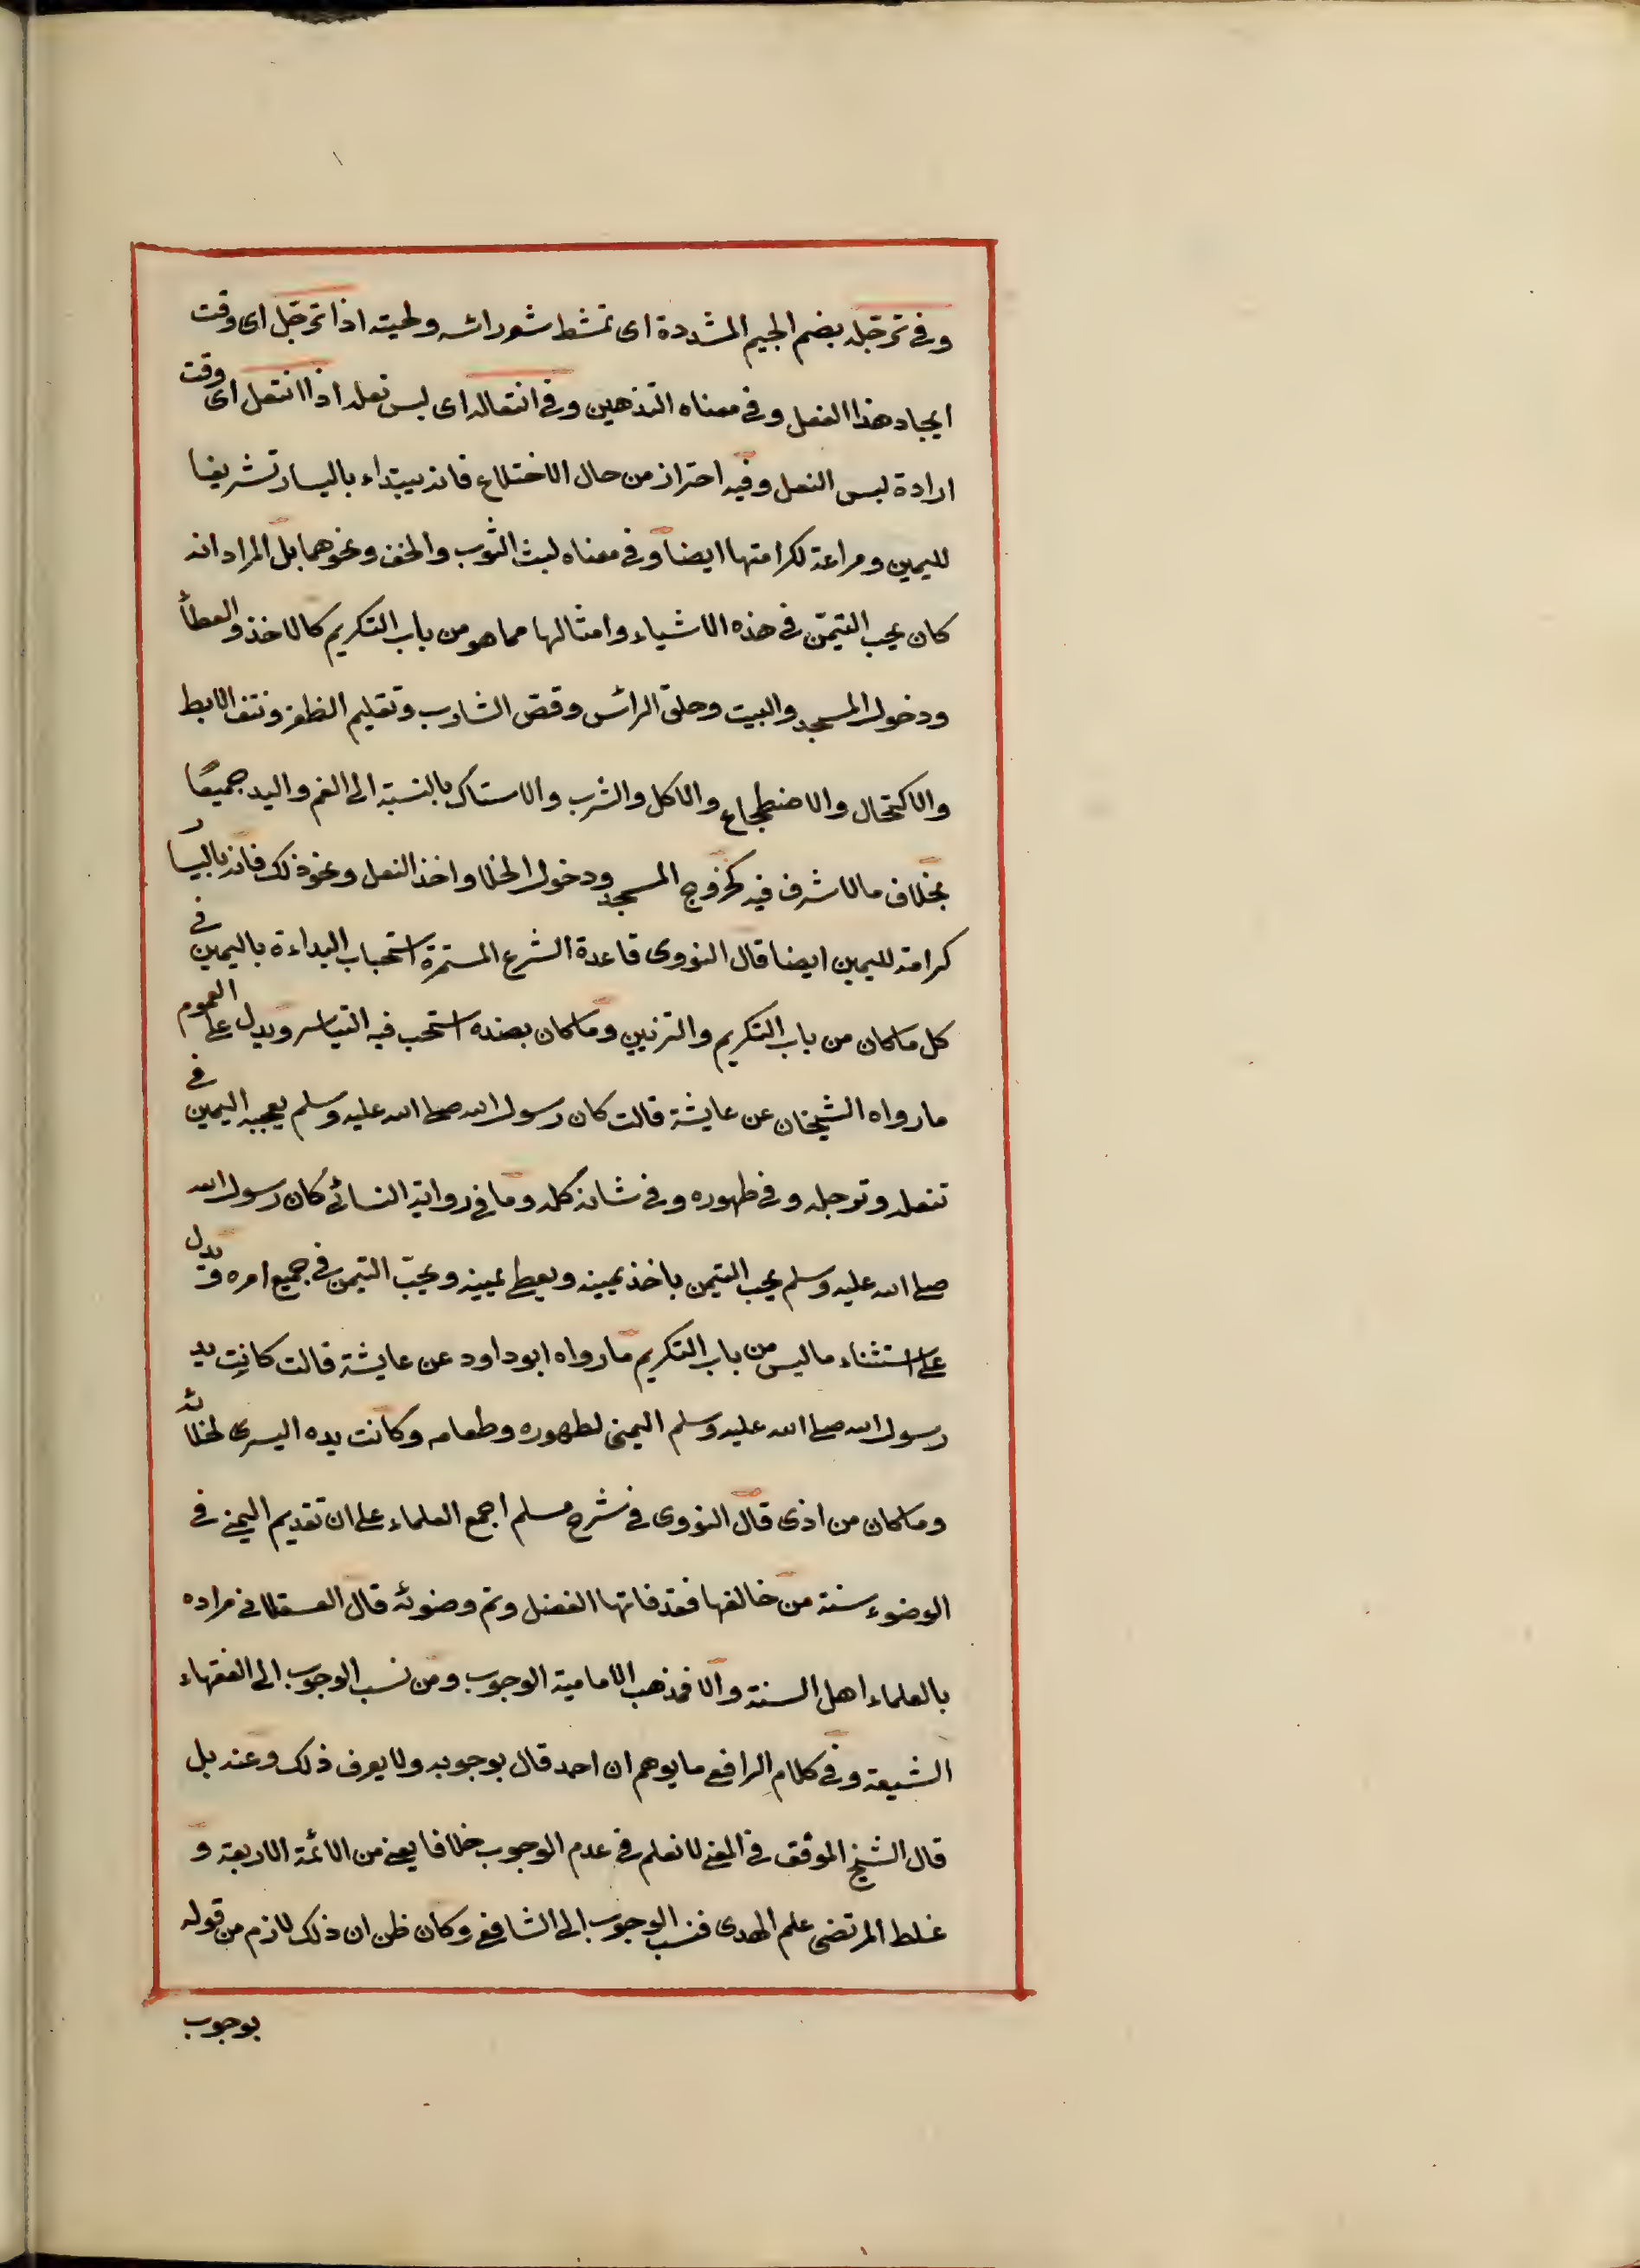 وفي ترجّله بضم الجيم المشددة اى تمشط شعر رائسه ولحيته اذا ترجّل اى وقت
ايجاد هذا الفعل وفي معناه التدهين وفي انتعاله اى لبس نعله اذا انتعل اى وقت
ارادة لبس النعل وفيه احتراز من حال الاختلاع فانه يبتداء باليسار تشريفا
لليمين ومراعة لكرامتها ايضا وفي معناه لبث الثوب والخف ونحوهما بل المراد انه
كان يحب التيمّن في هذه الاشياء وامثالها مما هو من باب التكريم كالاخذ والعطأ
ودخول المسجد والبيت وحلق الرائس وقصّ الشارب وتقليم الظفر ونتف الابط
والاكتحال والاضطجاع والاكل والشرب والاستاك بالنسبة الى الفم واليد جميعًا
بخلاف مالا شرف فيه كخروج المسجد ودخول الخلا واخذ النعل ونحو ذلك فانه باليسار
كرامة لليمين ايضا قال النووى قاعدة الشرع المستمرة استحباب البداءة باليمين في
كل ماكان من باب التكريم والتزيين وماكان بضده استحب فيه التياسر ويدل على العموم
مارواه الشيخان عن عايشة قالت كان رسول الله صلى الله عليه وسلم يعجبه اليمين في
تنعله وترجله وفي طهوره وفي شانه كله وما في رواية النسائي كان رسول الله
صلى الله عليه وسلم يحب التيمن ياخذ بيمينه ويعطى بيمينه ويحبّ التيمن في جميع امره ويدل
على استثناء ماليس من باب التكريم مارواه ابوداود عن عايشة قالت كانت يد
رسول الله صلى الله عليه وسلم اليمنى لطهوره وطعامه وكانت يده اليسرى لخلائه
وماكان من اذى قال النووى في شرح مسلم اجمع العلماء على ان تقديم اليمنى في
الوضوء سنة من خالفها فقد فاتها الفضل وتم وضوئه قال العسقلانى مراده
بالعلماء اهل السنة والا فمذهب الامامية الوجوب ومن نسب الوجوب الى الفقهاء
الشيعة وفي كلام الرافعى مايوهم ان احمد قال بوجوبه ولا يعرف ذلك وعنه بل
قال الشيخ الموفق في المغنى لانعلم في عدم الوجوب خلافا يعنى من الائمة الاربعة و
غلط المرتضى علم الهدى فنسب الوجوب الى الشافعى وكان ظن ان ذلك لازم من قوله
بوجوب